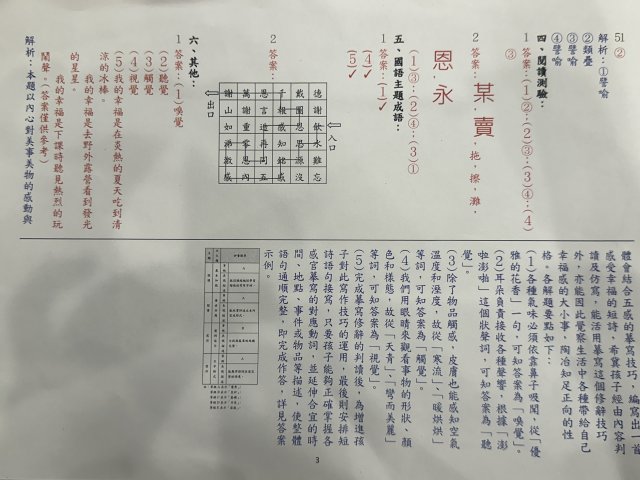 51
②
解析:①譬喻
②類疊
③譬喻
④譬喻
四、閱讀測驗:
1 答案:(1)②;(2)③;(3)④;(4)
③
2 答案:
某,賣,拖,擦,灘,
恩,永
五、國語主題成語:
(1)③;(2)④;(3)①
(4)✓
(5)✓
1 答案:(1)✓
2 答案:
入口
德戴
謝圖
飲恩
水思
難源
忘沒
出口
六、其他:
1 答案:(1)嗅覺
(2)聽覺
(3)觸覺
(4)視覺
(5)我的幸福是在炎熱的夏天吃到清
涼的冰棒。
我的幸福是去野外露營看到發光
的星星。
我的幸福是下課時聽見熱烈的玩
鬧聲。(答案僅供參考)
解析:本題以內心對美事美物的感動與
體會結合五感的摹寫技巧,編寫出一首
感受幸福的短詩,希冀孩子經由內容判
讀及仿寫,能活用摹寫這個修辭技巧
外,亦能因此覺察生活中各種帶給自己
幸福感的大小事,陶冶知足正向的性
格。各解題要點如下:
(1)各種氣味必須依靠鼻子吸聞,從「優
雅的花香」一句,可知答案為「嗅覺」。
(2)耳朵負責接收各種聲響,根據「澎
啦澎啪」這個狀聲詞,可知答案為「聽
覺」。
(3)除了物品觸感,皮膚也能感知空氣
溫度和溼度,故從「寒流」、「暖烘烘」
等詞,可知答案為「觸覺」。
(4)我們用眼睛來觀看事物的形狀、顏
色和樣態,故從「天青」、「彎而美麗」
等詞,可知答案為「視覺」。
(5)完成摹寫修辭的判讀後,為增進孩
子對此寫作技巧的運用,最後則安排短
詩語句接寫,只要孩子能夠正確掌握各
感官摹寫的對應動詞,並延伸合宜的時
間、地點、事件或物品等描述,使整體
語句通順完整,即完成作答,詳見答案
示例。
3